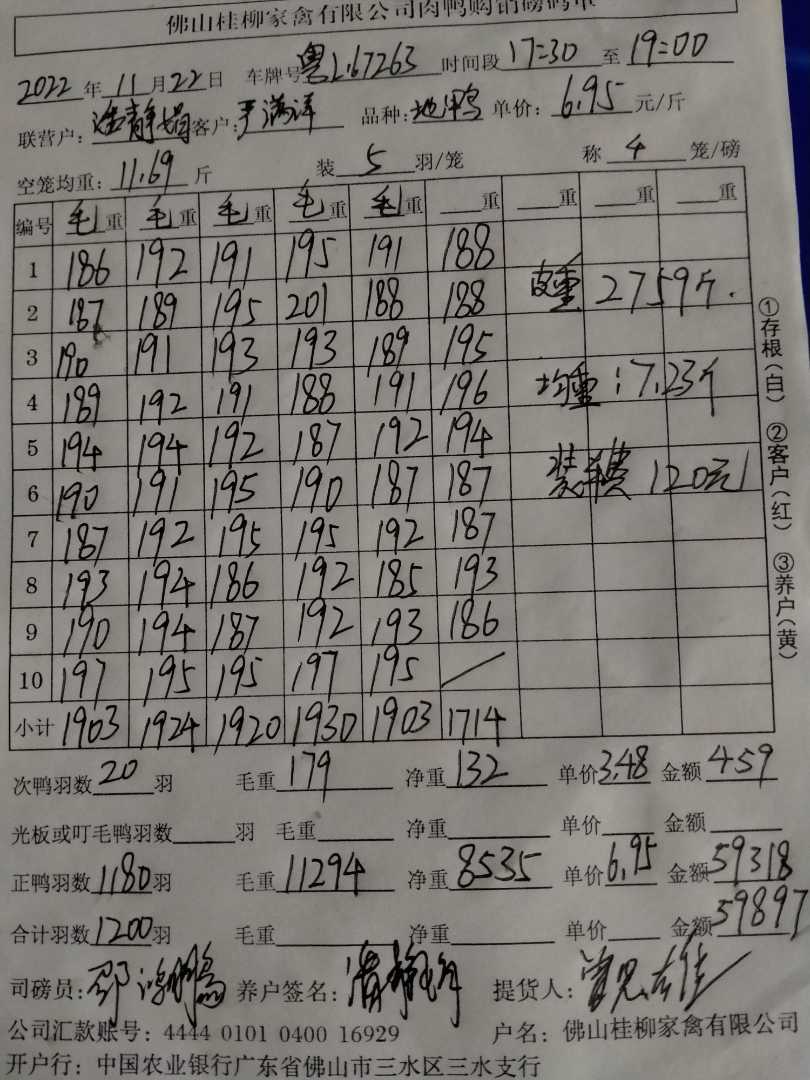 佛山桂柳家禽有限公司肉鸭购销磅码单
2022年11月22日 车牌号粤L67263 时间段17:30至19:00
联营户: 客户: 品种: 单价:6.95元/斤
空笼均重:11.69斤 装5羽/笼 称4笼/磅
编号 毛重 毛重 毛重 毛重 毛重 重 重 重 重
1 186 192 191 195 191 188
2 187 189 195 201 188 188 皮重 2759斤.
3 190 191 193 193 189 195
4 189 192 191 188 191 196 均重:7.23斤
5 194 194 192 187 192 194
6 190 191 195 190 187 187 装车费 120元
7 187 192 195 195 192 187
8 193 194 186 192 185 193
9 190 194 187 192 193 186
10 197 195 195 197 195 /
小计 1903 1924 1920 1930 1903 1714
①存根(白) ②客户(红) ③养户(黄)
次鸭羽数20羽 毛重179 净重132 单价3.48 金额459
光板或叮毛鸭羽数 羽 毛重 净重 单价 金额
正鸭羽数1180羽 毛重11294 净重8535 单价6.95 金额59318
合计羽数1200羽 毛重 净重 单价 金额59897
司磅员: 养户签名: 提货人:
公司汇款账号: 4444 0101 0400 16929 户名: 佛山桂柳家禽有限公司
开户行: 中国农业银行广东省佛山市三水区三水支行